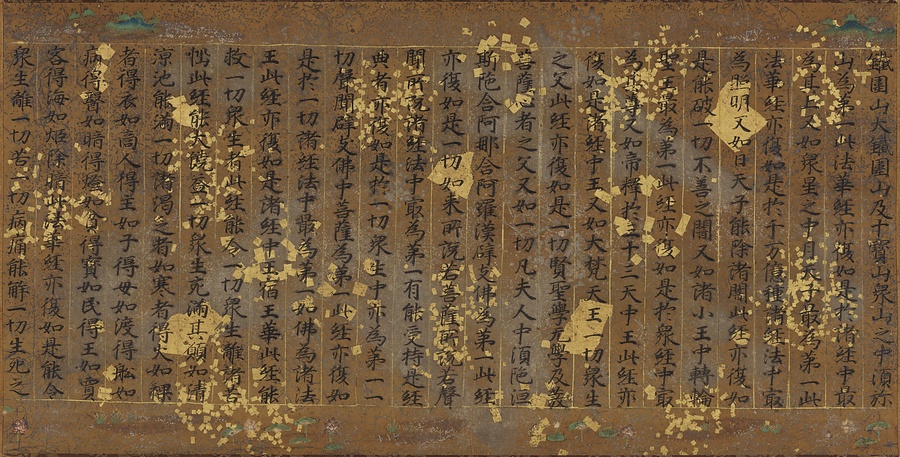 鐵圍山大鐵圍山及十寶山衆山之中須弥
山為第一此法華經亦復如是於諸經中最
為其上又如衆星之中月天子最為第一此
法華經亦復如是於千万億種諸經法中最
為照明又如日天子能除諸闇此經亦復如
是能破一切不善之闇又如諸小王中轉輪
聖王最為第一此經亦復如是於衆經中最
為其尊又如帝釋於三十三天中王此經亦
復如是諸經中王又如大梵天王一切衆生
之父此經亦復如是一切賢聖學无學及發
菩薩心者之父又如一切凡夫人中須陀洹
斯陀含阿那含阿羅漢辟支佛為第一此經
亦復如是一切如来所說若菩薩所說若聲
聞所說諸經法中最為第一有能受持是經
典者亦復如是於一切衆生中亦為第一一
切聲聞辟支佛中菩薩為第一此經亦復如
是於一切諸經法中最為第一如佛為諸法
王此經亦復如是諸經中王宿王華此經能
救一切衆生者此經能令一切衆生離諸苦
惱此經能大饒益一切衆生充滿其願如清
涼池能滿一切諸渴乏者如寒者得火如裸
者得衣如商人得主如子得母如渡得舩如
病得醫如暗得燈如貧得寶如民得王如賈
客得海如炬除暗此法華經亦復如是能令
衆生離一切苦一切病痛能解一切生死之